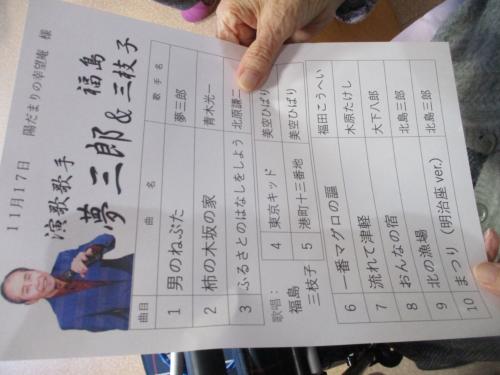 11月17日　陽だまりの幸望庵　様
演歌歌手　福島
夢 三郎 & 三枝子
曲目　曲　名　歌　手　名
1　男のねぶた　夢三郎
2　柿の木坂の家　青木光一
3　ふるさとのはなしをしよう　北原謙二
歌唱：福島三枝子
4　東京キッド　美空ひばり
5　港町十三番地　美空ひばり
6　一番マグロの謳　福田こうへい
7　流れて津軽　木原たけし
8　おんなの宿　大下八郎
9　北の漁場　北島三郎
10　まつり　(明治座 ver.)　北島三郎